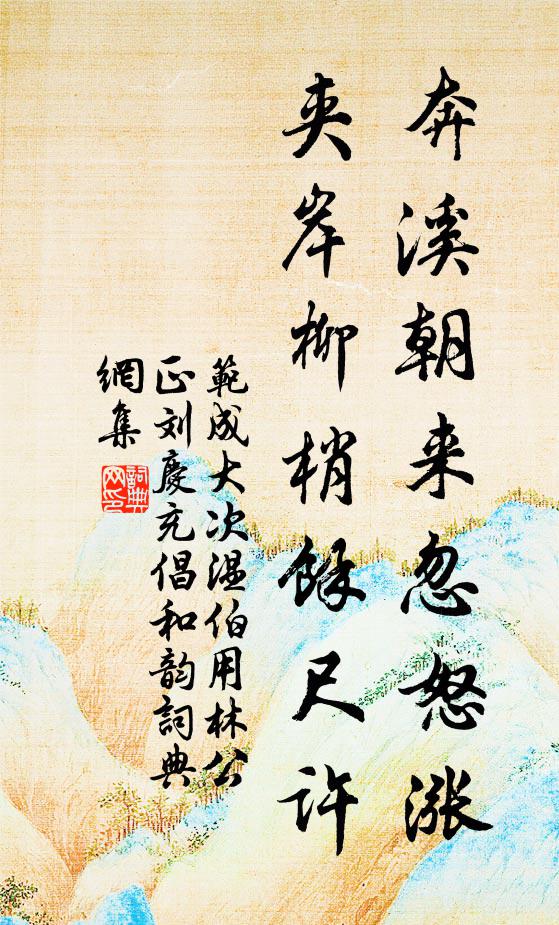 奔溪朝来忽怒涨
夹岸柳梢餘尺许
範成大次温伯用林公
正刘慶充倡和韵詞典
網集
詞典
网印